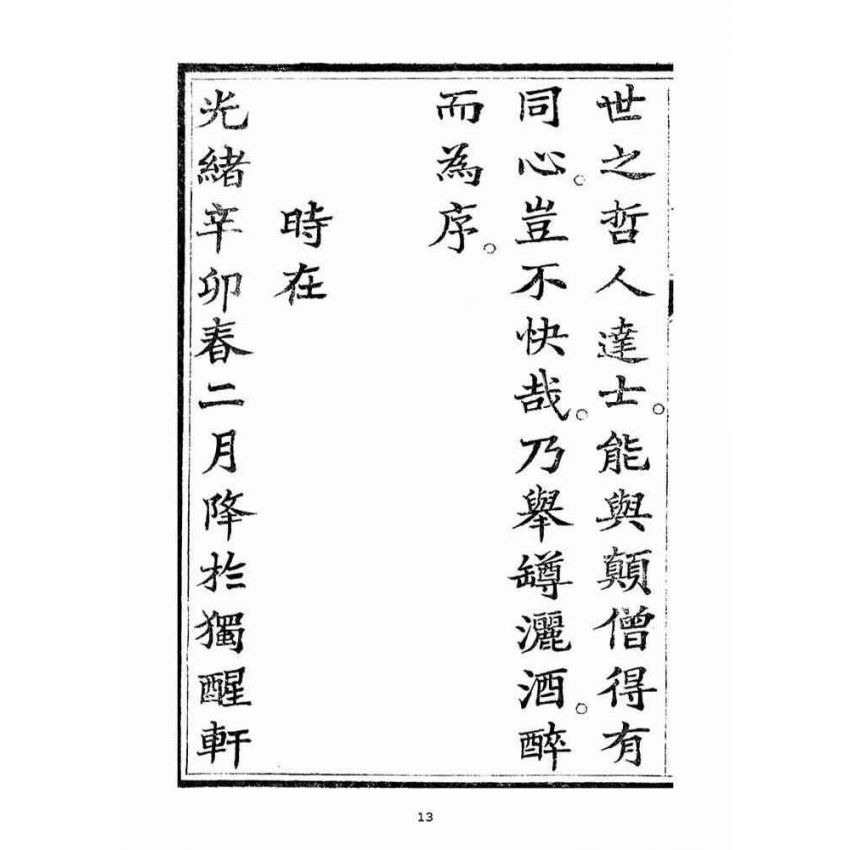 世之哲人達士。能與顛僧得有
同心。豈不快哉。乃舉罇灑酒。醉
而為序。
時在
光緒辛卯春二月降於獨醒軒
13